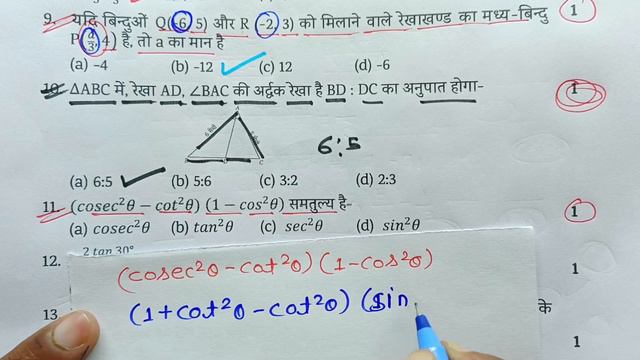 9. यदि बिन्दुओं Q(-6, 5) और R (-2, 3) को मिलाने वाले रेखाखण्ड का मध्य-बिन्दु 1
P(a/3, 4) है, तो a का मान है
(a) -4 (b) -12 (c) 12 (d) -6
10. ΔABC में, रेखा AD, ∠BAC की अर्द्धक रेखा है BD : DC का अनुपात होगा- 1
6:5
(a) 6:5 (b) 5:6 (c) 3:2 (d) 2:3
11. (cosec²θ − cot²θ) (1 − cos²θ) समतुल्य है- 1
(a) cosec²θ (b) tan²θ (c) sec²θ (d) sin²θ
12. 2 tan 30° 1
(cosec²θ-cot²θ) (1-cos²θ)
(1+cot²θ-cot²θ) (sin
13 के
1